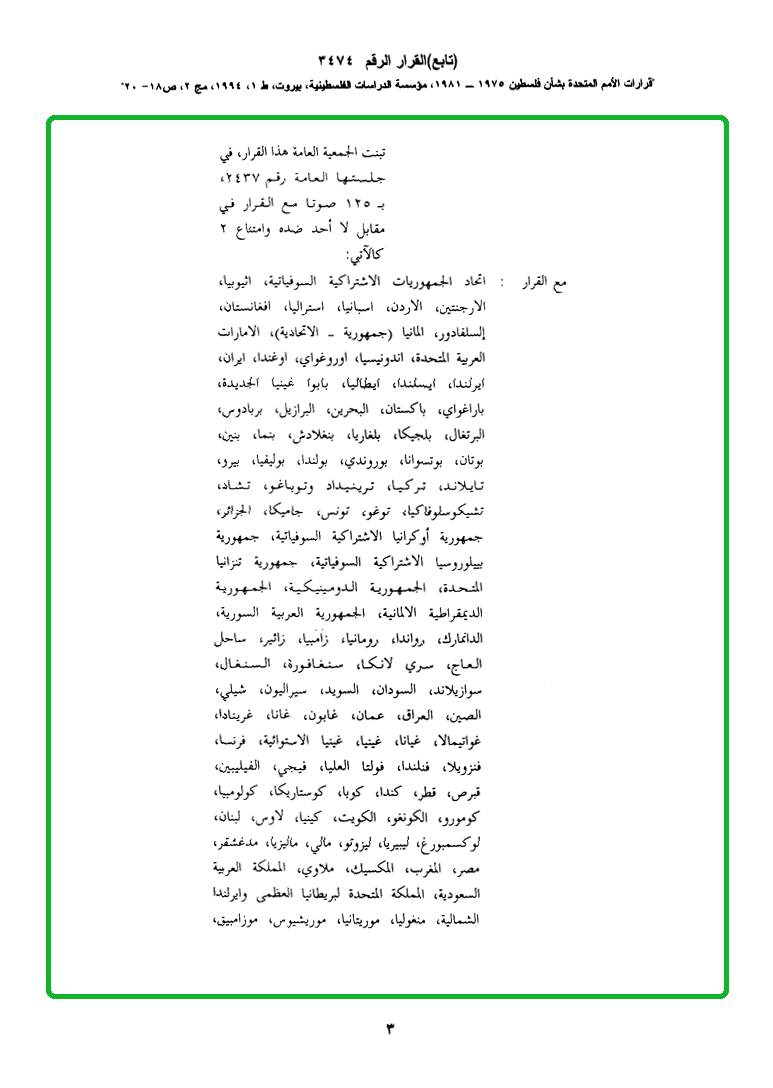 (تابع)القرار الرقم ٣٤٧٤
"قرارات الأمم المتحدة بشأن فلسطين ١٩٧٥ – ١٩٨١، مؤسسة الدراسات الفلسطينية، بيروت، ط ١، ١٩٩٤، مج ٢، ص١٨- ٢٠"
تبنت الجمعية العامة هذا القرار، في
جلستها العامة رقم ٢٤٣٧،
بـ ١٢٥ صوتا مع القرار في
مقابل لا أحد ضده وامتناع ٢
كالآتي:
مع القرار : اتحاد الجمهوريات الاشتراكية السوفياتية، اثيوبيا،
الارجنتين، الاردن، اسبانيا، استراليا، افغانستان،
إلسلفادور، المانيا (جمهورية – الاتحادية)، الامارات
العربية المتحدة، اندونيسيا، اوروغواي، اوغندا، ايران،
ايرلندا، ايسلندا، ايطاليا، بابوا غينيا الجديدة،
باراغواي، باكستان، البحرين، البرازيل، بربادوس،
البرتغال، بلجيكا، بلغاريا، بنغلادش، بنما، بنين،
بوتان، بوتسوانا، بوروندي، بولندا، بوليفيا، بيرو،
تايلاند، تركيا، ترينيداد وتوباغو، تشاد،
تشيكوسلوفاكيا، توغو، تونس، جاميكا، الجزائر،
جمهورية أوكرانيا الاشتراكية السوفياتية، جمهورية
بييلوروسيا الاشتراكية السوفياتية، جمهورية تنزانيا
المتحدة، الجمهورية الدومينيكية، الجمهورية
الديمقراطية الالمانية، الجمهورية العربية السورية،
الدانمارك، رواندا، رومانيا، زامبيا، زائير، ساحل
العاج، سري لانكا، سنغافورة، السنغال،
سوازيلاند، السودان، السويد، سيراليون، شيلي،
الصين، العراق، عمان، غابون، غانا، غرينادا،
غواتيمالا، غيانا، غينيا، غينيا الاستوائية، فرنسا،
فنزويلا، فنلندا، فولتا العليا، فيجي، الفيليبين،
قبرص، قطر، كندا، كوبا، كوستاريكا، كولومبيا،
كومورو، الكونغو، الكويت، كينيا، لاوس، لبنان،
لوكسمبورغ، ليبيريا، ليزوتو، مالي، ماليزيا، مدغشقر،
مصر، المغرب، المكسيك، ملاوي، المملكة العربية
السعودية، المملكة المتحدة لبريطانيا العظمى وايرلندا
الشمالية، منغوليا، موريتانيا، موريشيوس، موزامبيق،
٣